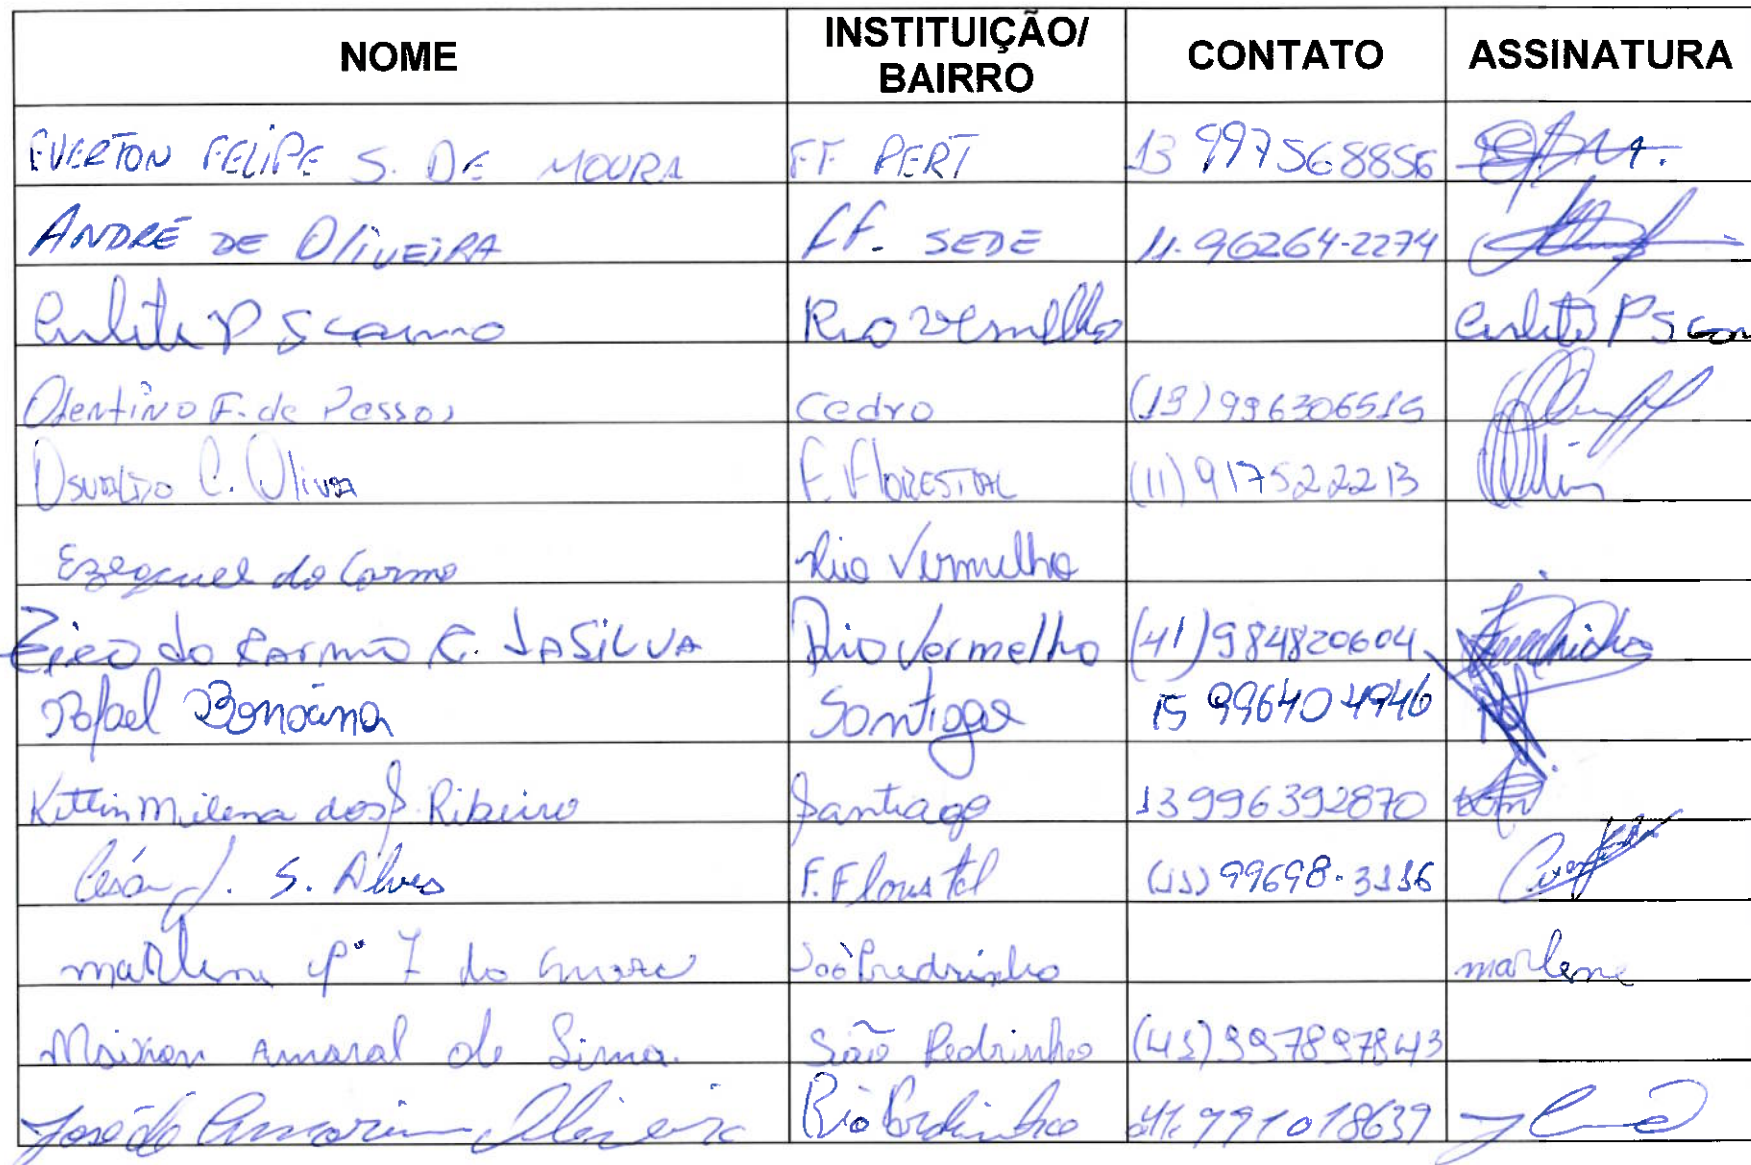 NOME INSTITUIÇÃO/ BAIRRO CONTATO ASSINATURA
EVERTON FELIPE S. DE MOURA FF PERT 13 997568856
ANDRÉ DE OLIVEIRA FF. SEDE 11-96264-2274
Rio Vermelho
F. de Passos Cedro (13) 996306515
Osvaldo C. Oliva F. FLORESTAL (11) 917522213
Ezequiel do Carmo Rio Vermelho
do Carmo R. DA SILVA Rio Vermelho (41) 984820604
Rafael Santiago 15 996404946
Kettlin Milena dos S. Ribeiro Santiago 13996392870
César J. S. Alves F. Florestal (11) 99698-3116
do marlene
Amaral de Lima São Pedrinho (41) 997897843
José de Amorim Oliveira Rio 991018639